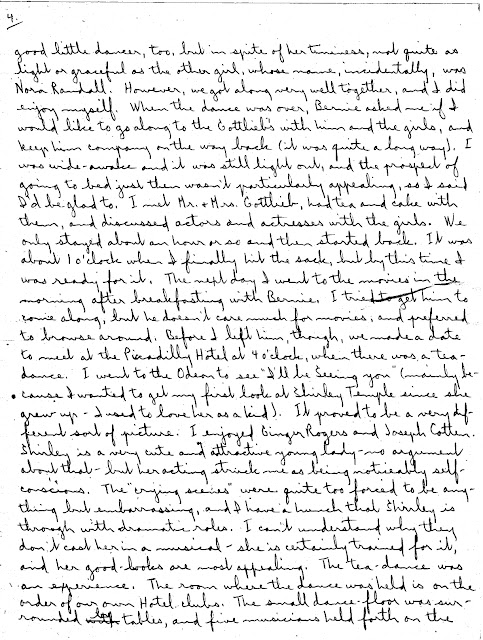 4.
good little dancer, too, but in spite of her tininess, not quite as
light or graceful as the other girl, whose name, incidentally, was
Nora Randall. However, we got along very well together, and I did
enjoy myself. When the dance was over, Bernie asked me if I
would like to go along to the Gottlieb's with him and the girls, and
keep him company on the way back (it was quite a long way). I
was wide-awake and it was still light out, and the prospect of
going to bed just then wasn't particularly appealing, so I said
I'd be glad to. I met Mr. & Mrs. Gottlieb, had tea and cake with
them, and discussed actors and actresses with the girls. We
only stayed about an hour or so and then started back. It was
about 1 o'clock when I finally hit the sack, but by this time I
was ready for it. The next day I went to the movies in the
morning after breakfasting with Bernie. I tried to get him to
come along, but he doesn't care much for movies, and preferred
to browse around. Before I left him, though, we made a date
to meet at the Picadilly Hotel at 4 o'clock, when there was a tea-
dance. I went to the Odeon to see "I'll be Seeing you" (mainly be-
cause I wanted to get my first look at Shirley Temple since she
grew up - I used to love her as a kid). It proved to be a very dif-
ferent sort of picture. I enjoyed Ginger Rogers and Joseph Cotten.
Shirley is a very cute and attractive young lady - no argument
about that - but her acting struck me as being noticeably self-
conscious. The "crying scenes" were quite too forced to be any-
thing but embarrassing, and I have a hunch that Shirley is
through with dramatic roles. I can't understand why they
don't cast her in a musical - she is certainly trained for it,
and her good-looks are most appealing. The tea-dance was
an experience. The room where the dance was held is on the
order of our own Hotel clubs. The small dance-floor was sur-
rounded by tables, and five musicians held forth on the